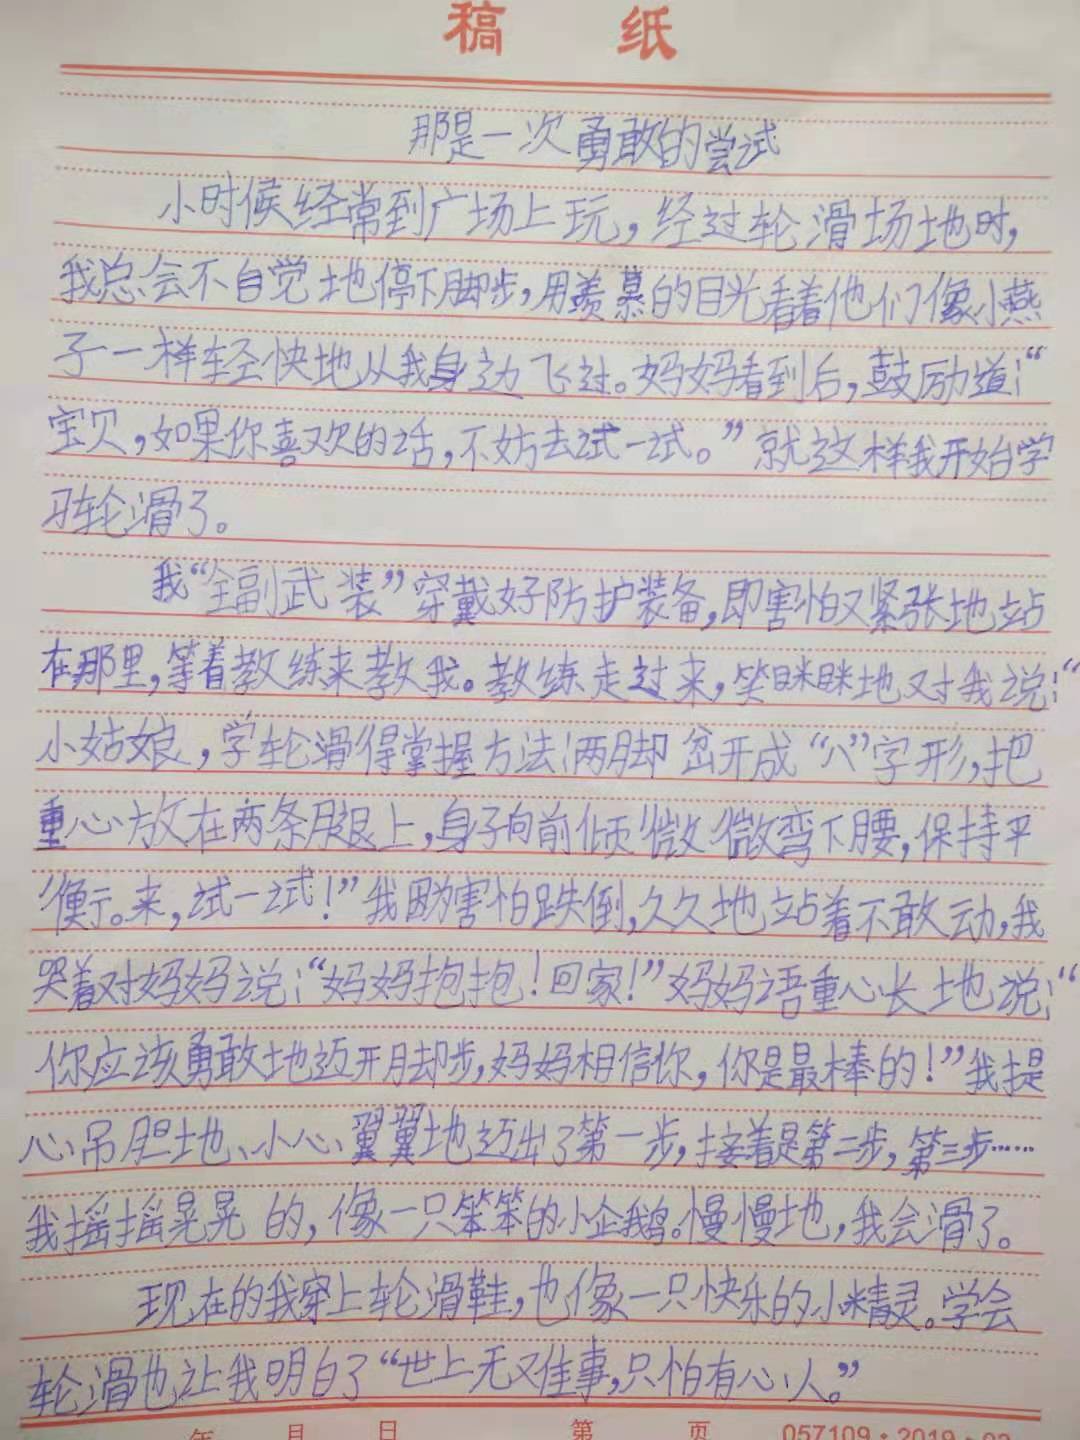 稿 纸
那是一次勇敢的尝试
小时候经常到广场上玩，经过轮滑场地时，
我总会不自觉地停下脚步，用羡慕的目光看着他们像小燕
子一样轻快地从我身边飞过。妈妈看到后，鼓励道：“
宝贝，如果你喜欢的话，不妨去试一试。”就这样我开始学
习轮滑了。
我“全副武装”穿戴好防护装备，即害怕又紧张地站
在那里，等着教练来教我。教练走过来，笑眯眯地对我说：“
小姑娘，学轮滑得掌握方法：两脚岔开成“八”字形，把
重心放在两条腿上，身子向前倾微微弯下腰，保持平
衡。来，试一试！”我因为害怕跌倒，久久地站着不敢动，我
哭着对妈妈说：“妈妈抱抱！回家！”妈妈语重心长地说：“
你应该勇敢地迈开脚步，妈妈相信你，你是最棒的！”我提
心吊胆地、小心翼翼地迈出了第一步，接着是第二步，第三步……
我摇摇晃晃的，像一只笨笨的小企鹅。慢慢地，我会滑了。
现在的我穿上轮滑鞋，也像一只快乐的小精灵。学会
轮滑也让我明白了“世上无难事，只怕有心人。”
年 月 日 第 页 057109·2019·02